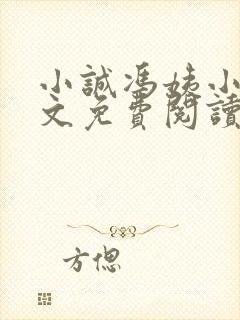 小誠馮姨小
文免費閱讀
方偲